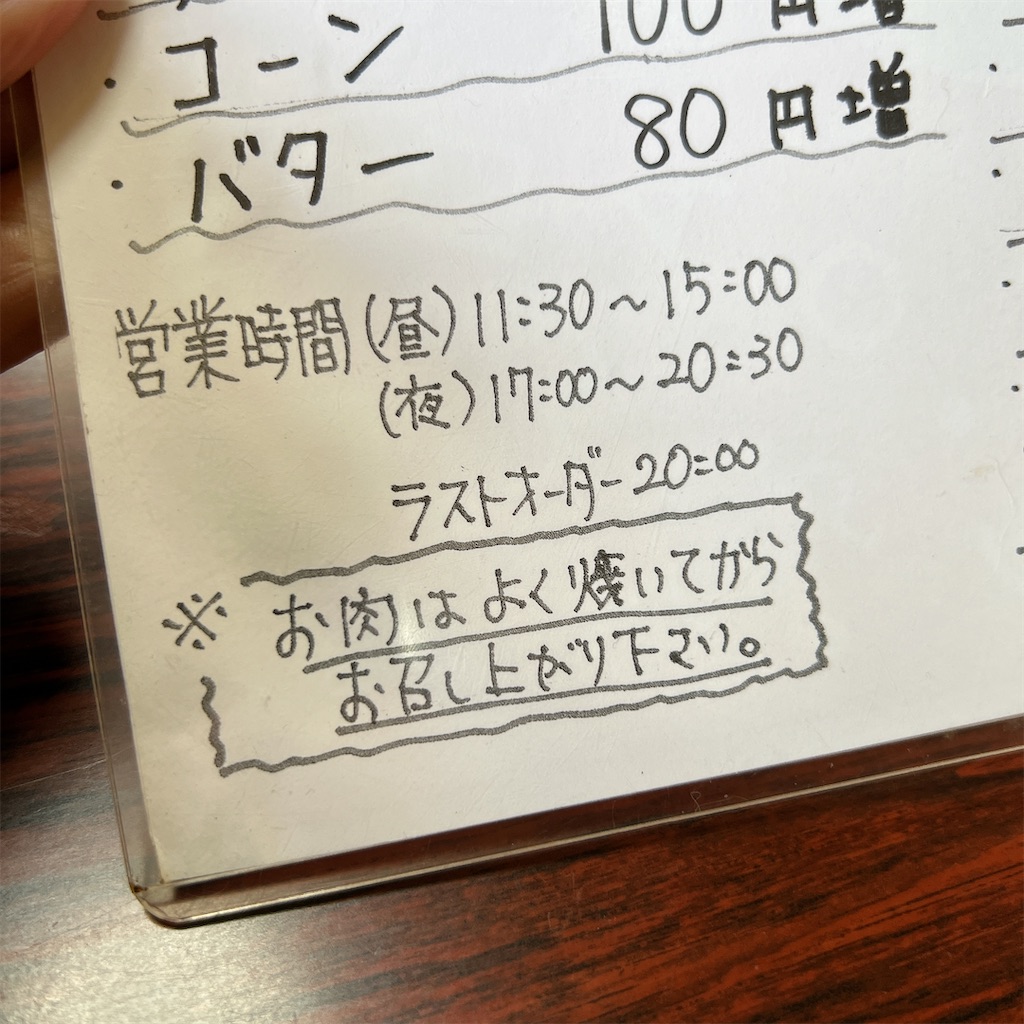 ・コーン 100円増
・バター 80円増
営業時間(昼)11:30～15:00
(夜)17:00～20:30
ラストオーダー20:00
※お肉はよく焼いてから
お召し上がり下さい。